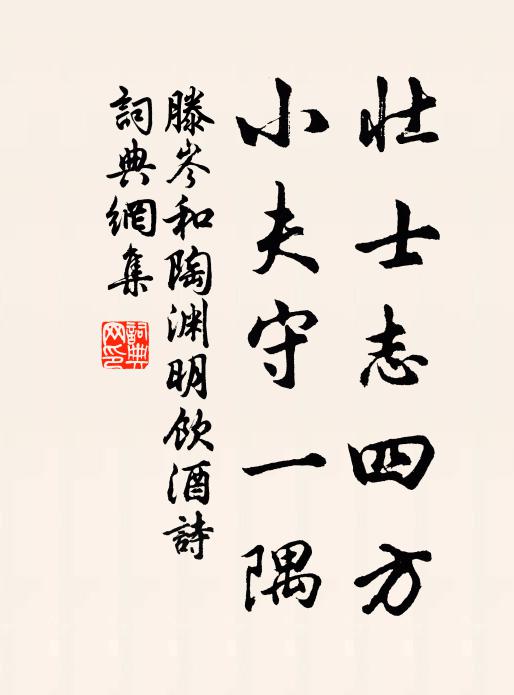 壮士志四方
小夫守一隅
滕岑和陶渊明飲酒詩
詞典網集
詞典
网印